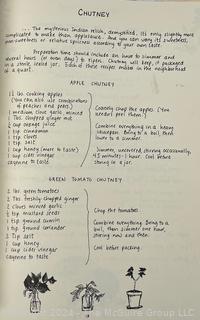 CHUTNEY
... The mysterious Indian relish, demystified. It's only slightly more
complicated to make than applesauce. And you can vary its sweetness,
non-sweetness or relative spiciness according to your own taste.
Preparation time should include an hour to simmer and
several hours (or even days) to ripen. Chutney will keep, if packed
in a sterile, sealed jar. Each of these recipes makes in the neighborhood
of a quart.
APPLE CHUTNEY
1½ lbs. cooking apples
(You can also use combinations
of peaches and pears.)
1 medium clove garlic, minced
1 Tbs. chopped ginger root
½ cup orange juice
1 tsp. cinnamon
1 tsp. cloves
1 tsp. salt
½ cup honey (more to taste)
1 cup cider vinegar
cayenne to taste
Coarsely chop the apples. (You
needn't peel them.)
Combine everything in a heavy
saucepan. Bring to a boil, then
lower to a simmer.
Simmer, uncovered, stirring occasionally,
45 minutes - 1 hour. Cool before
storing in a jar.
GREEN TOMATO CHUTNEY
2 lbs. green tomatoes
2 Tbs. freshly chopped ginger
2 cloves minced garlic
½ tsp mustard seeds
1 tsp ground cumin
1 tsp. ground coriander
2 tsp salt
1 cup honey
1 cup cider vinegar
Cayenne to taste
Chop the tomatoes.
Combine everything. Bring to a
boil, then simmer one hour,
stirring now and then.
Cool before packing.